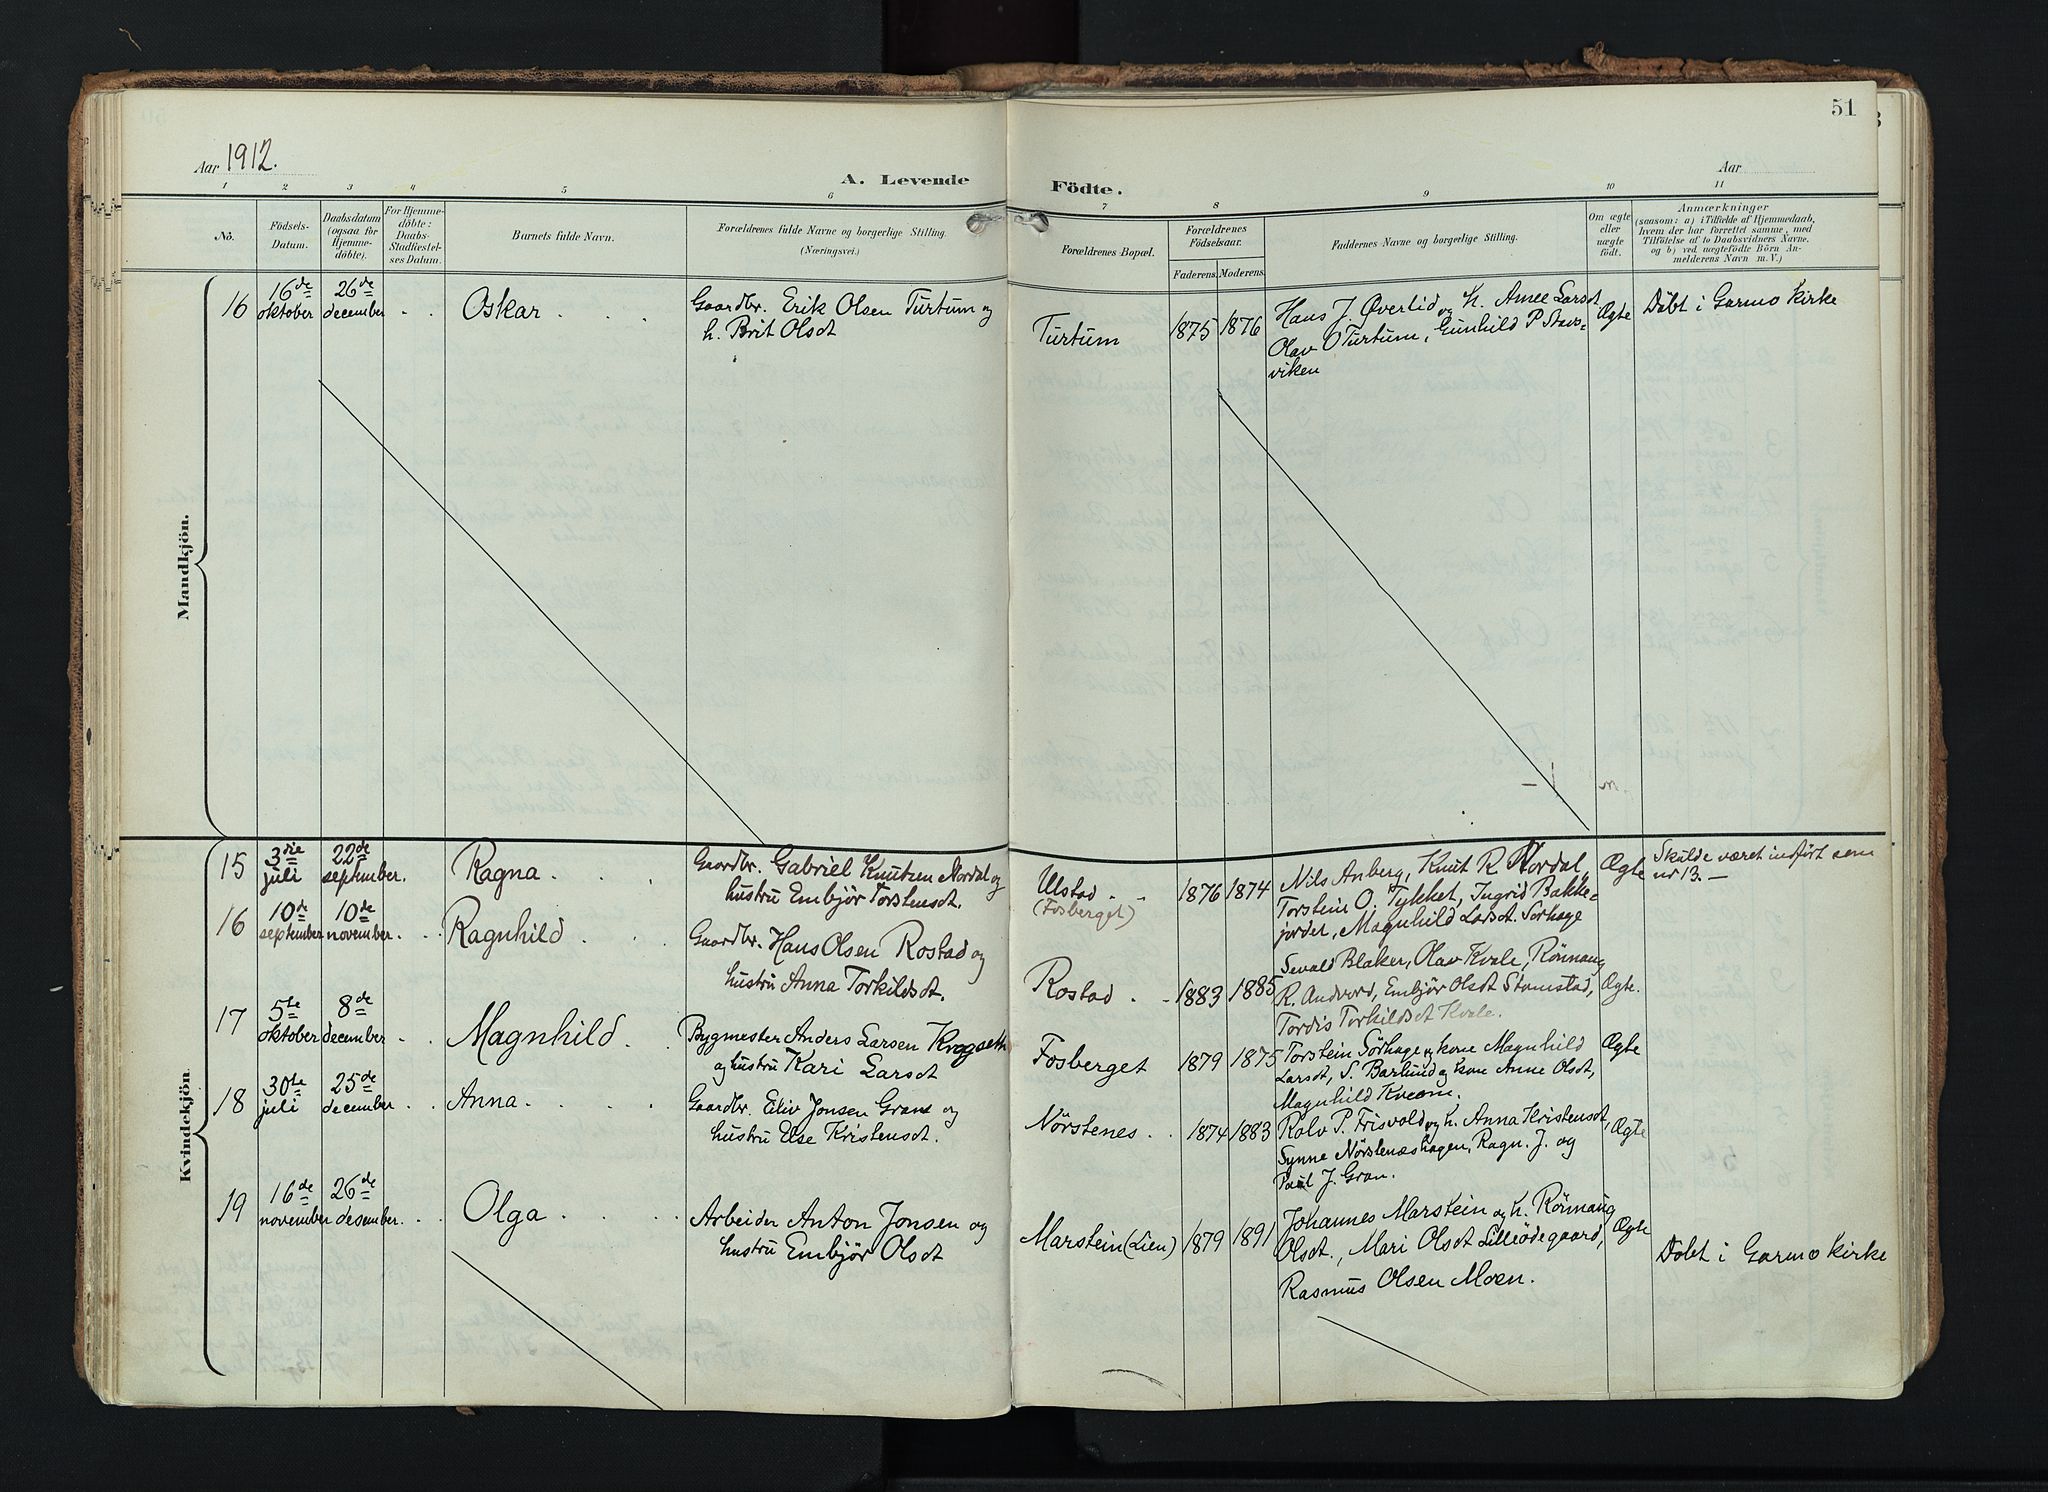 51
Aar 1912.
Aar
A. Levende Födte.
1 2 3 4 5 6 7 8 9 10 11
No.
Födsels-Datum.
Daabsdatum (ogsaa for Hjemme-döbte).
For Hjemme-döbte: Daabs-Stadfæstel-ses Datum.
Barnets fulde Navn.
Forældrenes fulde Navne og borgerlige Stilling.
(Næringsvei.)
Forældrenes Bopæl.
Forældrenes Födselsaar.
Faderens. Moderens.
Faddernes Navne og borgerlige Stilling.
Om ægte eller uægte født.
Anmærkninger
(saasom: a) i Tilfælde af Hjemmedaab,
hvem der har forrettet samme, med
Tilföielse af to Daabsvidners Navne,
og b) ved uægtefödte Börn An-
melderens Navn m. V.)
Mandkjön.
16 16de oktober 26de december Oskar Gaardbr. Erik Olsen Turtum og
h. Brit Olsdt
Turtum 1875 1876
Hans J. Øverlid og h. Anne Larsdt
Olav O Turtum, Gunhild P Stavs-
viken
Ægte
Döbt i Garmo kirke
Kvindekjön
15 3die juli 22de september. Ragna Gaardbr. Gabriel Knutsen Nordal og
hustru Embjör Torstensdt.
Ulstad
(Fosberget)
1876 1874
Nils Anberg, Knut R Nordal,
Torstein O. Tykket, Ingrid Bakke-
jordet, Magnhild Larsdt. Sörhage
Ægte
Skulde været indfört som
nr 13.
16 10de september 10de november. Ragnhild Gaardbr. Hans Olsen Rostad og
hustru Anna Torkildsdt.
Rostad 1883 1885
Sevald Blaker, Olav Kvale, Rönnaug
R. Andvord, Embjör Olsdt Stamstad,
Tordis Torkildsdt Kvale.
Ægte.
17 5te oktober 8de december Magnhild Bygmester Anders Larsen
og hustru Kari Larsdt
Fosberget 1879 1875
Torstein Sörhage og kone Magnhild
Larsdt, S. Barlund og kone Anne Olsdt,
Magnhild Kveom.
Ægte
18 30te juli 25de december Anna Gaardbr. Eiliv Jonsen Gran og
hustru Else Kristensdt.
Nörstenes 1874 1883
Rolv P. Frisvold og h. Anna Kristensdt,
Synne Nörstenæshagen, Ragn. J. og
Paul J. Gran.
Ægte
19 16de november 26de desember Olga Arbeider Anton Jonsen og
hustru Embjör Olsdt
Marstein (Lien) 1879 1891
Johannes Marstein og h. Rönnaug
Olsdt., Mari Olsdt Lilleödegaard,
Rasmus Olsen Moen.
Ægte
Döbt i Garmo kirke